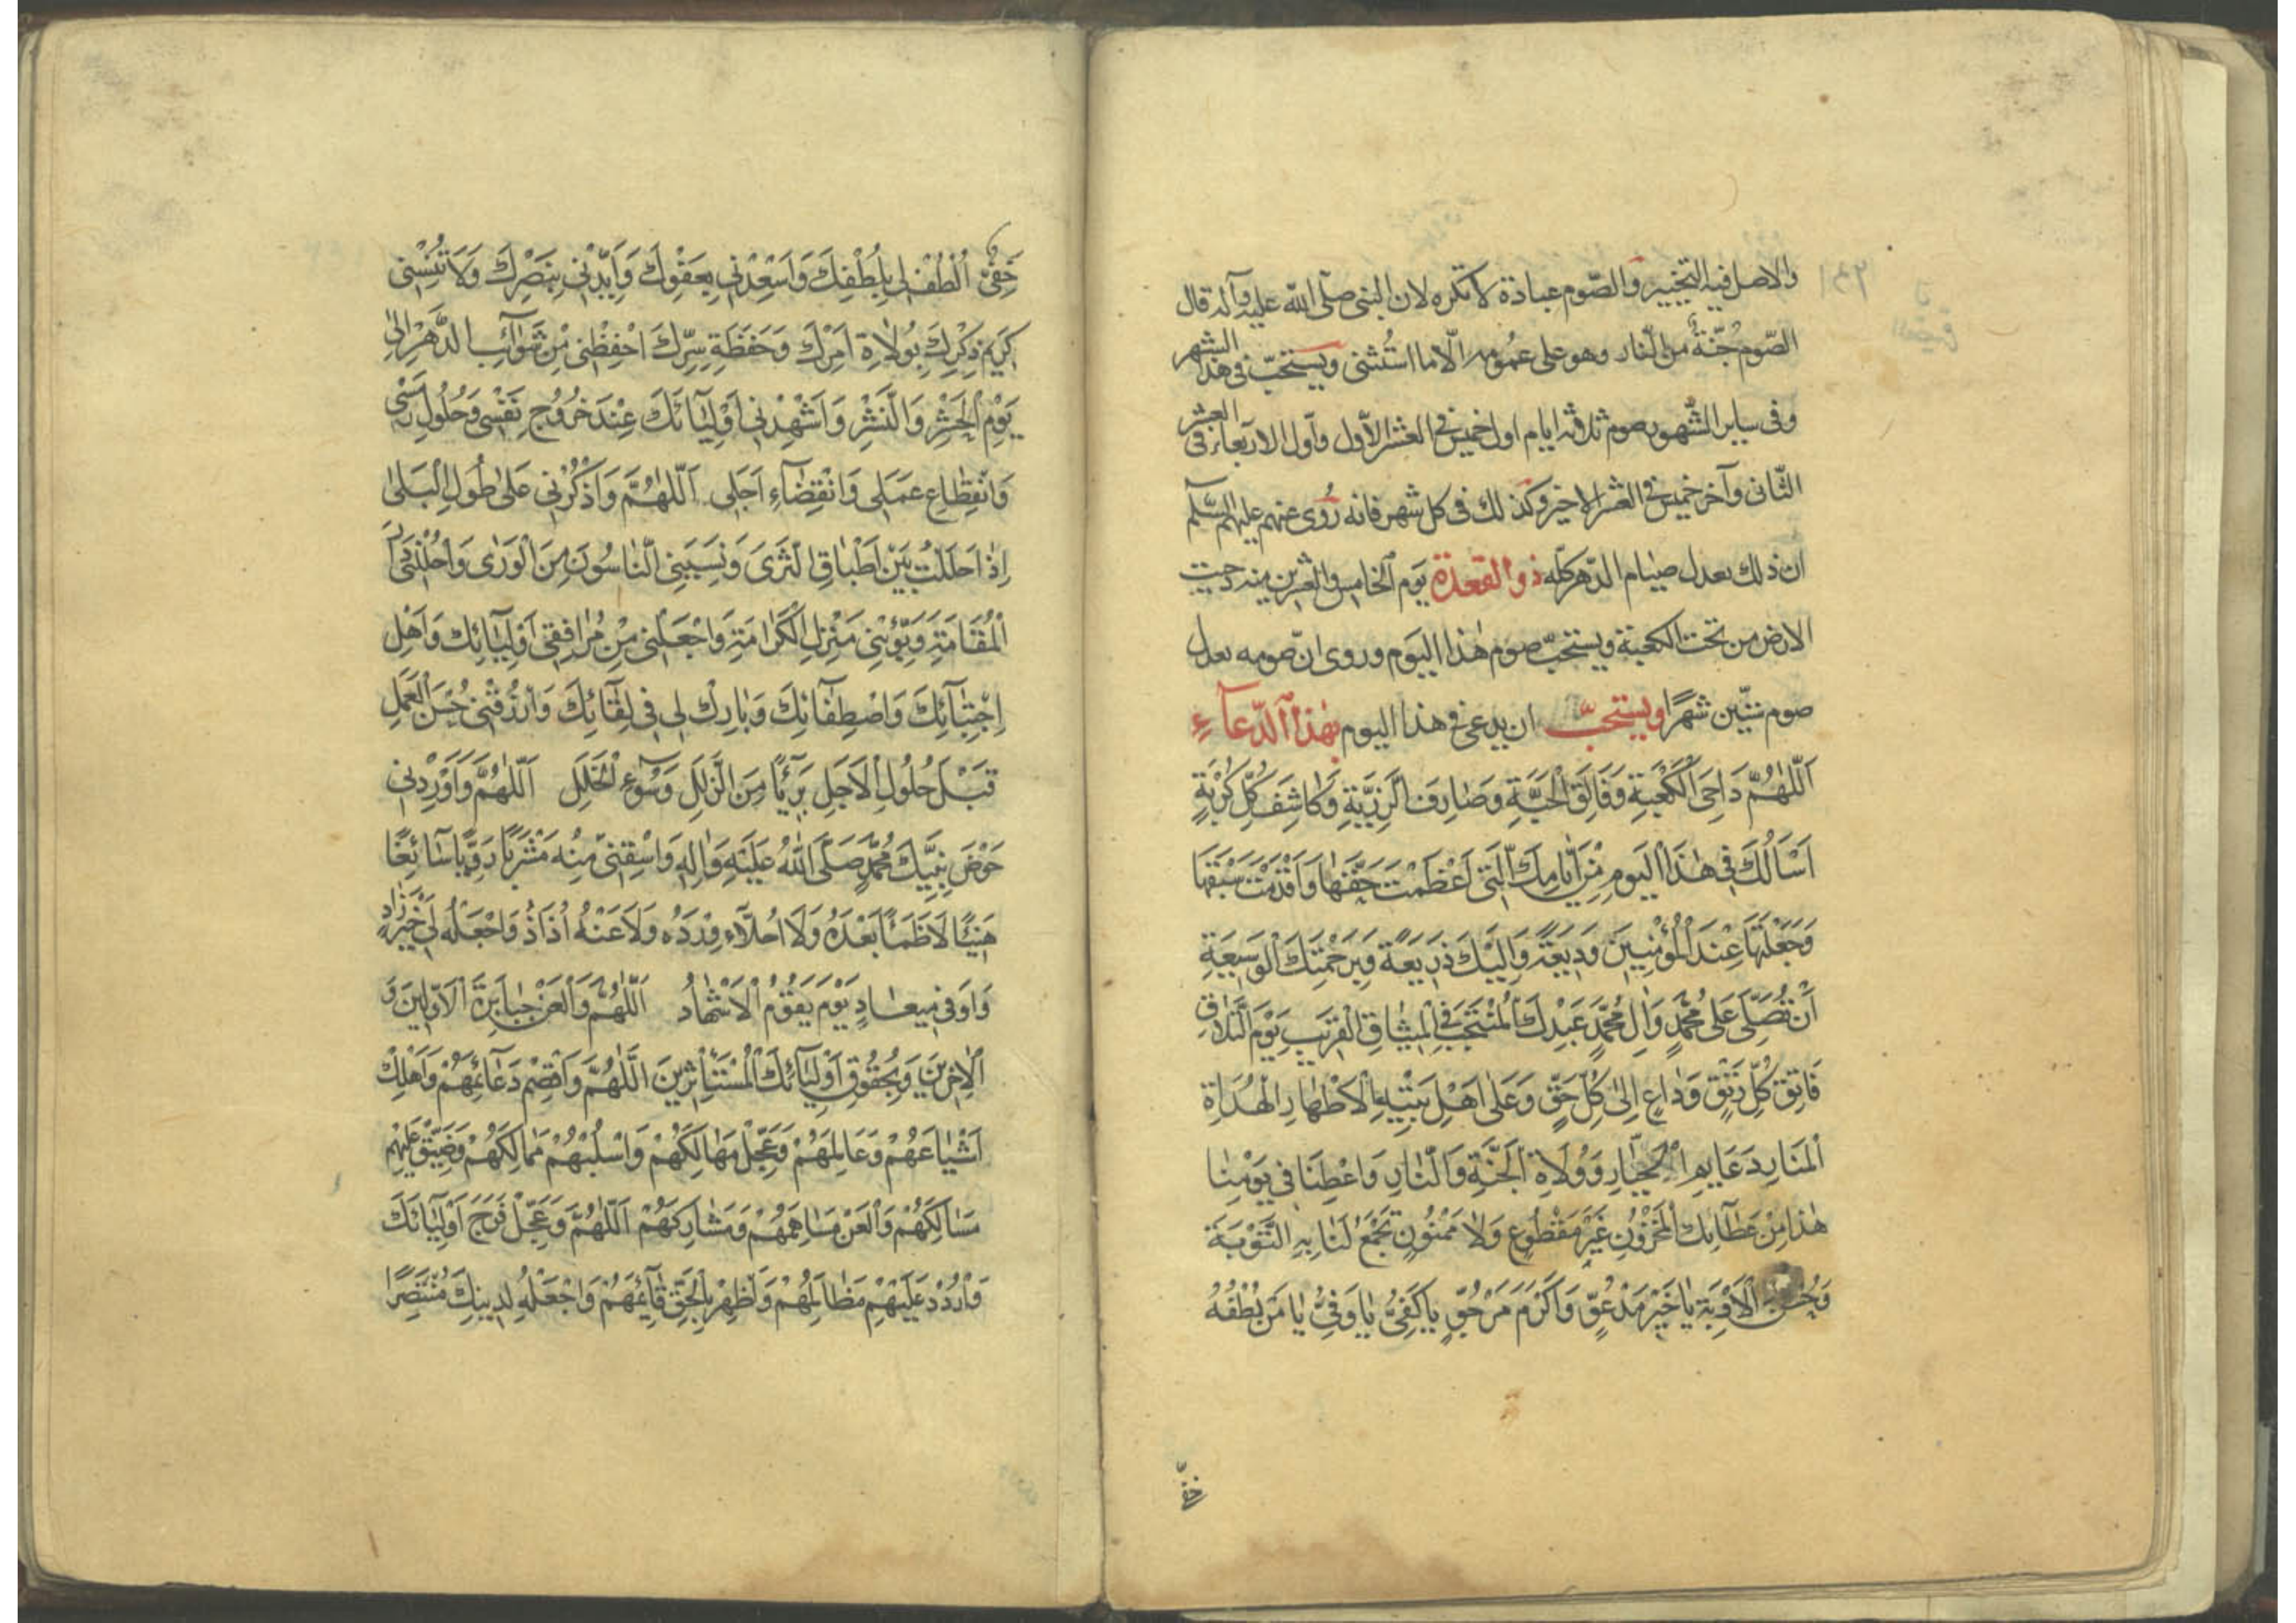 والاصل فيه التخيير والصّوم عبادة لا تكره لان النبى صلّى الله عليه وآله قال
الصّوم جُنّةٌ من النّار وهو على عمومه الّا ما استُثنى ويستحبّ فى هذا الشهر
وفى ساير الشّهور صوم ثلاثة ايام اول خميس فى العشر الاّول واّول الاربعاء فى العشر
الثّانى وآخر خميس فى العشر الاخير وكذلك فى كل شهر فانه رُوى عنهم عليهم السّلم
ان ذلك يعدل صيام الدّهر كلّه ذو القعدة يوم الخامس والعشرين منه دحيت
الارض من تحت الكعبة ويستحبّ صوم هٰذا اليوم وروى انّ صومه يعدل
صوم ستّين شهرًا ويستحبّ ان يدعى فى هذا اليوم بهٰذا الدّعآءِ
اَللّٰهُمَّ دَاحِىَ الْكَعْبَةِ وَفَالِقَ الْحَبَّةِ وَصَارِفَ الَّرَزِيَّةِ وَكَاشِفَ كُلِّ كُرْبَةٍ
اَسْاَلُكَ فِى هٰذَا الْيَومِ مِنْ اَيّٰامِكَ الَّتِى اَعْظَمْتَ حَقَّهٰا وَاَقْدَمْتَ سَبْقَهَا
وَجَعَلْتَهَا عِنْدَ الْمُؤْمِنِينَ وَدِيعَةً وَاِلَيْكَ ذَرِيعَةً وَبِرَحْمَتِكَ الْوَسِيعَةِ
اَنْ تُصَلِّىَ عَلىٰ مُحَمَّدٍ وَاٰلِ مُحَمَّدٍ عَبْدِكَ الْمُنْتَجَبِ فِى الْمِيثٰاقِ الْقَرِيبِ يَوْمَ التَّلَاقِ
فَاتِقِ كُلِّ رَتْقٍ وَدٰاعٍ اِلىٰ كُلِّ حَقٍّ وَعَلىٰ اَهْلِ بَيْتِهِ الْاَطْهٰارِ الْهُدَاةِ
الْمَنَارِ دَعَايِمِ الْجَبّٰارِ وَوُلَاةِ الْجَنَّةِ وَالنّٰارِ وَاَعْطِنَا فِى يَوْمِنٰا
هٰذا مِنْ عَطٰآئِكَ الْمَخْزُونِ غَيْرَ مَقْطُوعٍ وَلٰا مَمْنُونٍ تَجْمَعُ لَنٰا بِهِ التَّوْبَةَ
وَحُسْنَ الْاَوْبَةِ يٰا خَيْرَ مَدْعُوٍّ وَاَكْرَمَ مَرْجُوٍّ يٰا كَفِىُّ يٰا وَفِىُّ يٰا مَنْ لُطْفُهُ
خفىّ
خَفِىٌّ اُلْطُفْ لِى بِلُطْفِكَ وَاَسْعِدْنِى بِعَفْوِكَ وَاَيِّدْنِى بِنَصْرِكَ وَلَا تُنْسِنِى
كَرِيمَ ذِكْرِكَ بِوُلٰاةِ اَمْرِكَ وَحَفَظَةِ سِرِّكَ احْفِظْنِى مِنْ شَوٰآئِبِ الدَّهْرِ اِلىٰ
يَوْمِ الْحَشْرِ وَالنَّشْرِ وَاَشْهِدْنِى اَوْلِيٰآئَكَ عِنْدَ خُرُوجِ نَفْسِى وَحُلُولِ رَمْسِى
وَانْقِطٰاعِ عَمَلِى وَانْقِضٰآءِ اَجَلِى اَللّٰهُمَّ وَاذْكُرْنِى عَلىٰ طُولِ الْبَلىٰ
اِذٰا حَلَلْتُ بَيْنَ اَطْبٰاقِ الثَّرىَ وَنَسِيَنِى النّٰاسُونَ مِنَ الْوَرٰى وَاَحْلِلْنِى دَارَ
الْمُقٰامَةِ وَبَوِّئْنِى مَنْزِلَ الْكَرٰامَةِ وَاجْعَلْنِى مِنْ مُرٰافِقِى اَوْلِيٰآئِكَ وَاَهْلِ
اِجْتِبٰآئِكَ وَاصْطِفٰآئِكَ وَبٰارِكْ لِى فِى لِقٰآئِكَ وَارْزُقْنِى حُسْنَ الْعَمَلِ
قَبْلَ حُلُولِ الْاَجَلِ بَرِئًا مِنَ الزَّلَلِ وَسُوٓءِ الْخَلَلِ اَللّٰهُمَّ وَاَوْرِدْنِى
حَوْضَ نَبِيِّكَ مُحَمَّدٍ صَلَّى اللّٰهُ عَلَيْهِ وَاٰلِهِ وَاسْقِنِى مِنْهُ مَشْرَبًا رَوِيًّا سٰآئِغًا
هَنِئًا لَا ظَمَأً بَعْدَهُ وَلَا اُحَلَّأُ وِرْدَهُ وَلَا عَنْهُ اُذَادُ وَاجْعَلْهُ لِى خَيْرَ زٰادٍ
وَاَوْفىٰ مِيعٰادٍ يَوْمَ يَقُومُ الْاَشْهٰادُ اَللّٰهُمَّ وَالْعَنْ جَبٰابِرَةَ الْاَوَّلِينَ وَ
الْاٰخِرِينَ وَبِحُقُوقِ اَوْلِيٰآئِكَ الْمُسْتَأْثِرِينَ اَللّٰهُمَّ وَاقْصِمْ دَعٰآئِمَهُمْ وَاَهْلِكْ
اَشْيٰاعَهُمْ وَعَامِلَهُمْ وَعَجِّلْ مَهٰالِكَهُمْ وَاسْلُبْهُمْ مَمٰالِكَهُمْ وَضَيِّقْ عَلَيْهِمْ
مَسٰالِكَهُمْ وَالْعَنْ مُسٰاهِمَهُمْ وَمُشٰارِكَهُمْ اَللّٰهُمَّ وَعَجِّلْ فَرَجَ اَوْلِيٰآئِكَ
وَارْدُدْ عَلَيْهِمْ مَظٰالِمَهُمْ وَاَظْهِرْ بِالْحَقِّ قٰآئِمَهُمْ وَاجْعَلْهُ لِدِينِكَ مُنْتَصِرًا